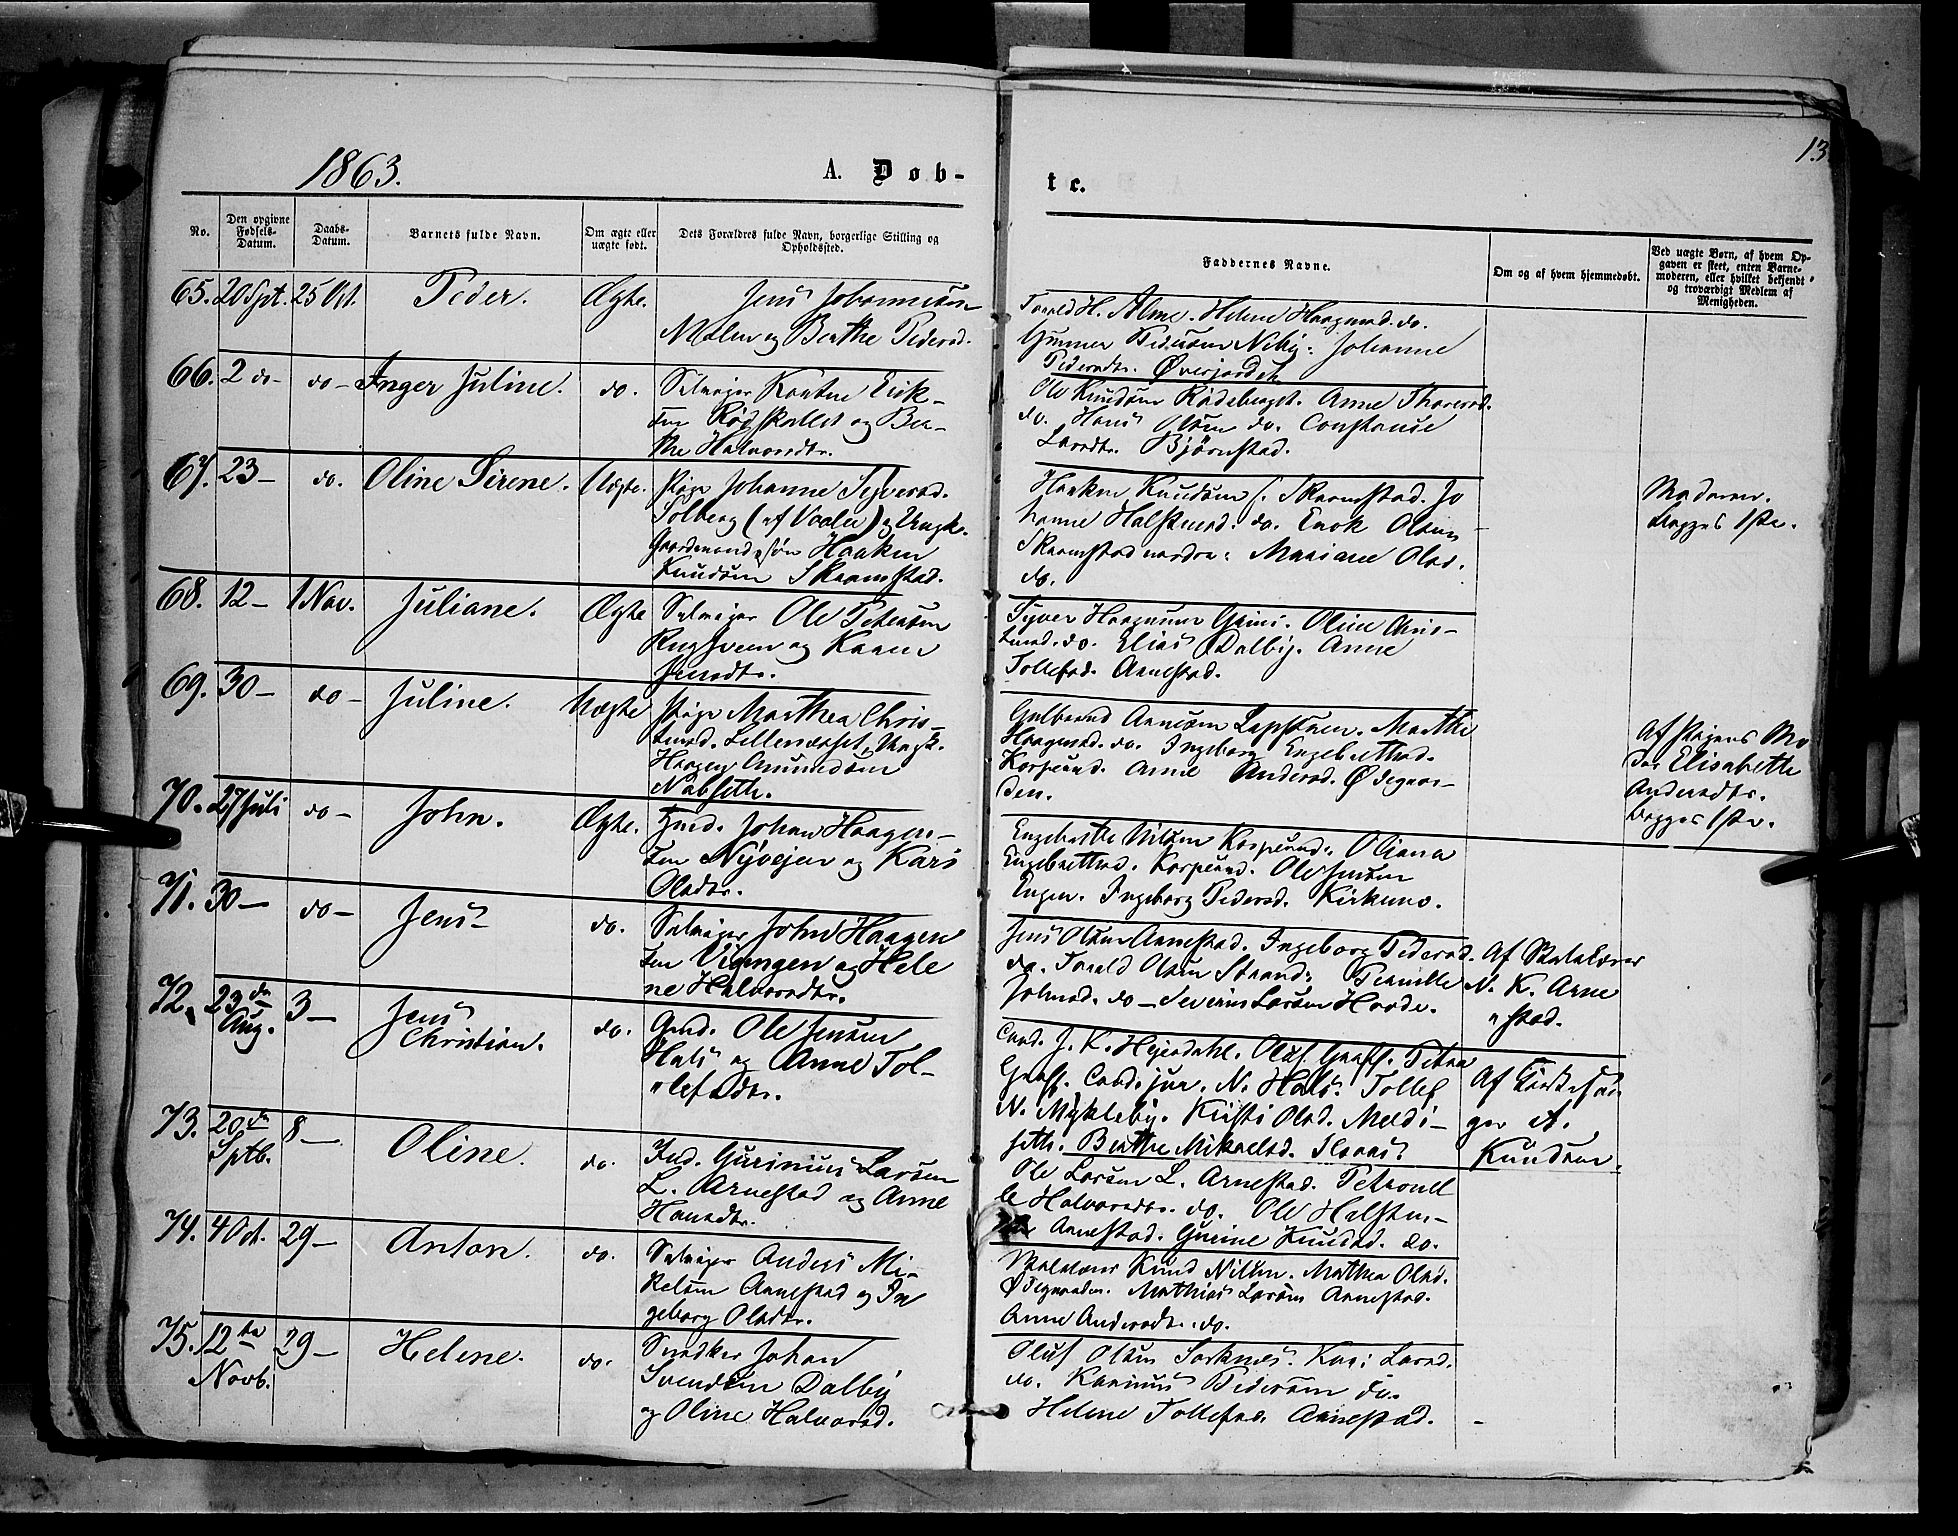 1863.
A. Døb-
te.
13
No.
Den opgivne Fødsels-Datum.
Daabs-Datum.
Barnets fulde Navn.
Om ægte eller uægte født.
Dets Forældres fulde Navn, borgerlige Stilling og Opholdssted.
Faddernes Navne.
Om og af hvem hjemmedøbt.
Ved uægte Børn, af hvem Opgaven er skeet, enten Barnemoderen, eller hvilket bekjendt og troværdigt Medlem af Menigheden.
65. 20 Spt. 25 Oct. Peder. Ægte. Jens Johannesen
og Berthe Pedersd.
Torald H. Alme. Helene Haagensd. do.
Gunner Pedersen Neby. Johanne
Pedersdtr. Øverjordet
66. 2 do- do- Inger Juline. do. Selveier Erik-
sen Rødskallet og Ber-
the Halvorsdtr.
Ole Knudsen Rødsberget. Anne
do. Hans Olsen do. Constanse
Larsdtr. Bjørnstad.
67. 23- do. Oline Sirene. Uægte. Pige Johanne Syversd.
Solberg (af Vaaler) og Ungk.
Gaardmandssøn Haaken
Knudsen Skramstad.
Haaken Knudsen Skramstad. Jo
hanne Halstensd. do. Enok Olsen
Skramstad nordre. Mariane Olsd.
do.
Moderen.
Begges 1ste.
68. 12- 1 Nov. Juliane. Ægte Selveier Ole Petersen
Rugsveen og Karen
Jensdtr.
Syver Haagensen Grini. Oline Chris-
tensd. do. Elias Dalby. Anne
Tollefsd. Arnestad.
69. 30- do- Juline. Uægte Pige Marthea Chris-
tensd. Ungk.
Haagen Amundsen
Nabseth.
Gulbrand Arnesen Marthe
Haagensd. do. Ingeborg Engebrethsd.
Korpsund. Anne Andersd. Ødegaar-
den.
Af Pigens Mo
der Elisabeth
Andersdtr.
Begges 1ste.
70. 27 Juli do- John. Ægte. Hmd. Johan Haagen-
sen Nyvejen og Kari
Olsdtr.
Engebrethe Nilsen Korpsund. Oliana
Engebrethsd. Korpsund. Ole Jensen
Engen. Ingeborg Pedersd. Kirkemo.
71. 30- do- Jens do. Selveier John Haagen
sen Vigingen og Hele
ne Halvorsdtr.
Jens Olsen Arnestad. Ingeborg Pedersd.
do. Torald Olsen Strand. Pernille
Johnsd. do- Severin Larsen Horde.
Af Skolelærer
N. K. Arne
stad.
72. 23de Aug. 3- Jens
Christian. do. Gmd. Ole Jensen
Hals og Anne Tol-
lefsdtr.
Cand. J. K. Hejerdahl. Oluf Graff. Petra
Graff. Cand. jur. N. Hals. Tollef
N. Mykleby. Kristi Olsd. Meldi-
seth. Berthe Mikaelsd.
Af Kirkesan-
ger A.
Knudsen.
73. 20de Sptb. 8- Oline. do. Ind. Gurinius Larsen
L. Arnestad og Anne
Hansdtr.
Ole Larsen L. Arnestad. Petronel
le Halvorsdtr. do. Ole Halsten-
sen Arnestad. Gurine Knudsd. do.
74. 4 Oct. 29- Anton. do. Selveier Anders Mi-
kelsen Arnestad og In
geborg Olsdtr.
Skolelærer Knud Nilsen. Mathea Olsd.
Ødegaarden. Mathias Larsen Arnestad.
Anne Andersdtr. do.
75. 12te Novb. 29- Helene. do. Snedker Johan
Svendsen Dalby
og Oline Halvorsd.
Oluf Olsen Sorknes. Kari Larsd.
do. Karinus Pedersen do.
Helene Tollefsd. Arnestad.